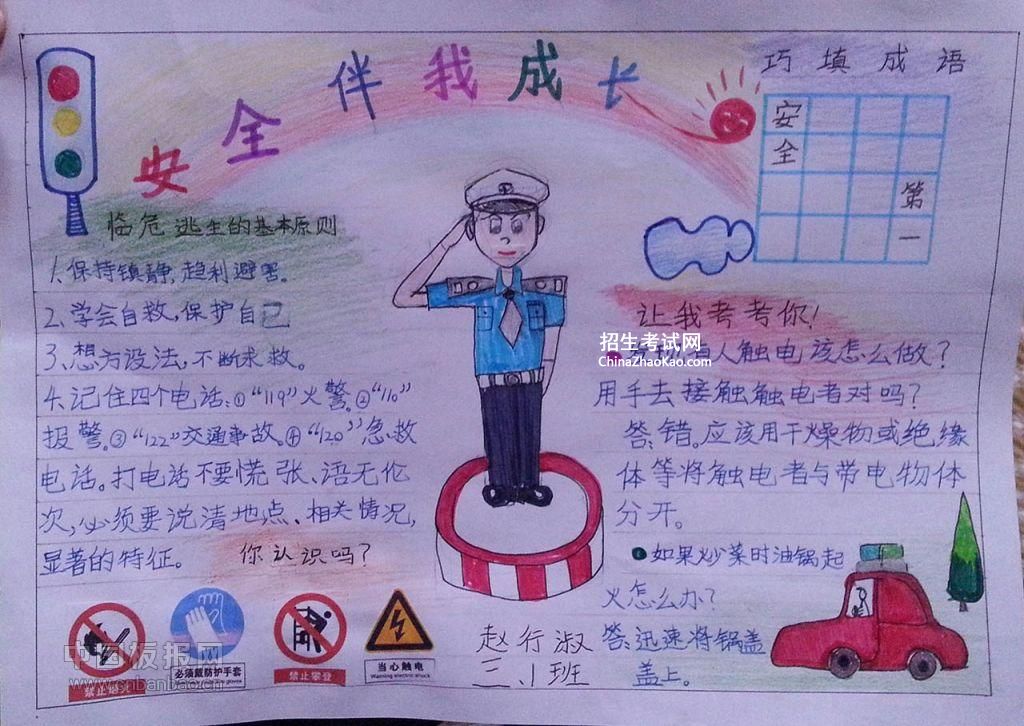 安全伴我成长
巧填成语
安
全
第
一
临危逃生的基本原则
1、保持镇静,趋利避害。
2、学会自救,保护自己
3、想方设法,不断求救。
4、记住四个电话:①“119”火警。②“110”
报警。③“122”交通事故。④“120”急救
电话。打电话不要慌张、语无伦
次,必须要说清地点、相关情况,
显著的特征。
你认识吗?
让我考考你!
招生考试网
ChinaZhaoKao.com
人触电该怎么做?
用手去接触触电者对吗?
答:错。应该用干燥物或绝缘
体等将触电者与带电物体
分开。
如果炒菜时油锅起
火怎么办?
答:迅速将锅盖
盖上。
赵行淑
三、1班
必须戴防护手套
禁止攀登
当心触电
Warning electric shock
中国板报网
www.cnbanbao.cn